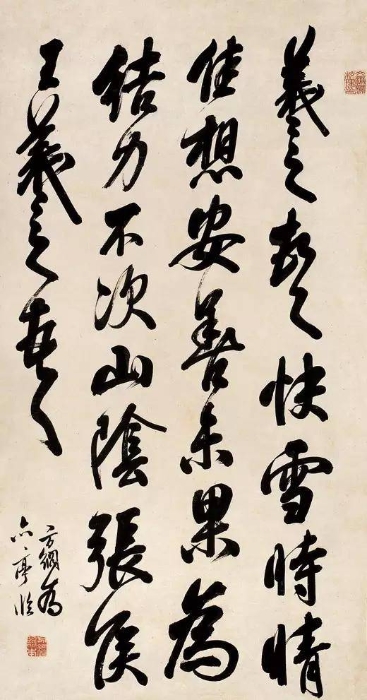 羲之頓首快雪時晴
佳想安善未果為
結力不次山陰張侯
王羲之頓首
方綱為
六亭臨